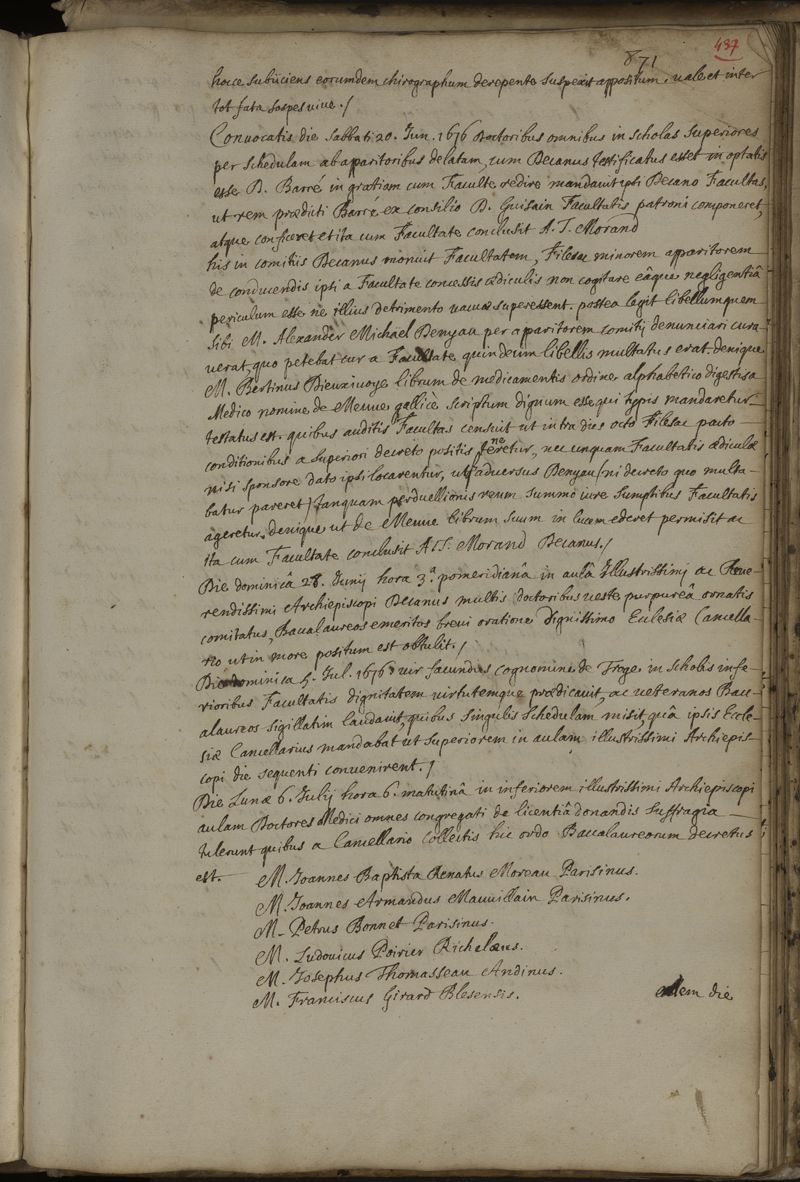 437
871
hocce subiiciens eorumdem chirographum derepente suspexit appositum. vale et inter
tot fata sospes vive ./
Convocatis die sabbati 20. Jun. 1676 doctoribus omnibus in scholas superiores
per schedulam ab apparitoribus delatam, cum Decanus testificatus esset in optatis
esse D. Barré in gratiam cum Faculte redire mandavit ipsi Decano Facultas,
ut rem prædicti Barré ex consilio D. Guisain Facultatis patroni componeret,
atque conficeret et ita cum Facultate conclusit A. J. Morand
his in comitiis Decanus monuit Facultatem, Filesac minorem apparitorem
de conducendis ipsi a Facultate concessis ædiculis non cogitare eâque negligentiâ
periculum esse ne illius detrimento vacuæ superessent. postea legit libellum quem
sibi M. Alexander Michael Denyau per apparitorem comitii denunciari cura-
verat, quo petebat cur a Facultate quindecim libellis multatus erat. denique
M. Bertinus Dieuxivoye librum de medicamentis ordine alphabetico digestis a
Medico nomine de Meuve gallicè scriptum dignum esse qui typis mandaretur
testatus est. quibus auditis Facultas censuit ut intra dies octo Filesac pacto
conditionibus a superiori decreto positis teneretur, nec unquam Facultatis ædiculæ
nisi sponsore dato ipsi locarentur, ut adversus Denyau (ni decreto quo multa-
batur pareret) tanquam perduellionis reum summo iure sumptibus Facultatis
ageretur. denique ut de Meuve librum suum in lucem ederet permisit ac
ita cum Facultate conclusit A. J. Morand Decanus ./
Die dominicâ 28. Junij hora 3ª. pomeridianâ in aulâ Illustrissimi ac Reve-
rendissimi Archiepiscopi Decanus multis doctoribus veste purpureâ ornatis
comitatus, Baccalaureos emeritos brevi oratione Dignissimo Ecclesiæ Cancella-
rio ut in more positum est obtulit ./
Die dominica 5. Jul. 1676 vir facundus cognomine de Froge in scholis infe-
rioribus Facultatis dignitatem virtutemque prædicavit, ac veteranos Bacc-
alaureos sigillatim laudavit, quibus singulis schedulam misit, quâ ipsis Eccle-
siæ Cancellarius mandabat ut superiorem in aulam illustrissimi Archiepis-
copi die sequenti convenirent ./
Die Lunæ 6. Julij hora 6. matutinâ in inferiorem illustrissimi Archiepiscopi
aulam Doctores Medici omnes congregati de licentiâ donandis suffragia
tulerunt quibus a Cancellario collectis hic ordo Baccalaureorum decretus
est.
M. Joannes Baptista Renatus Moreau Parisinus.
M. Joannes Armandus Mauvillain Parisinus.
M. Petrus Bonnet Parisinus.
M. Ludovicus Poirier Richelæus.
M. Josephus Thomasseau Andinus.
M. Franciscus Girard Blesensis.
eadem die